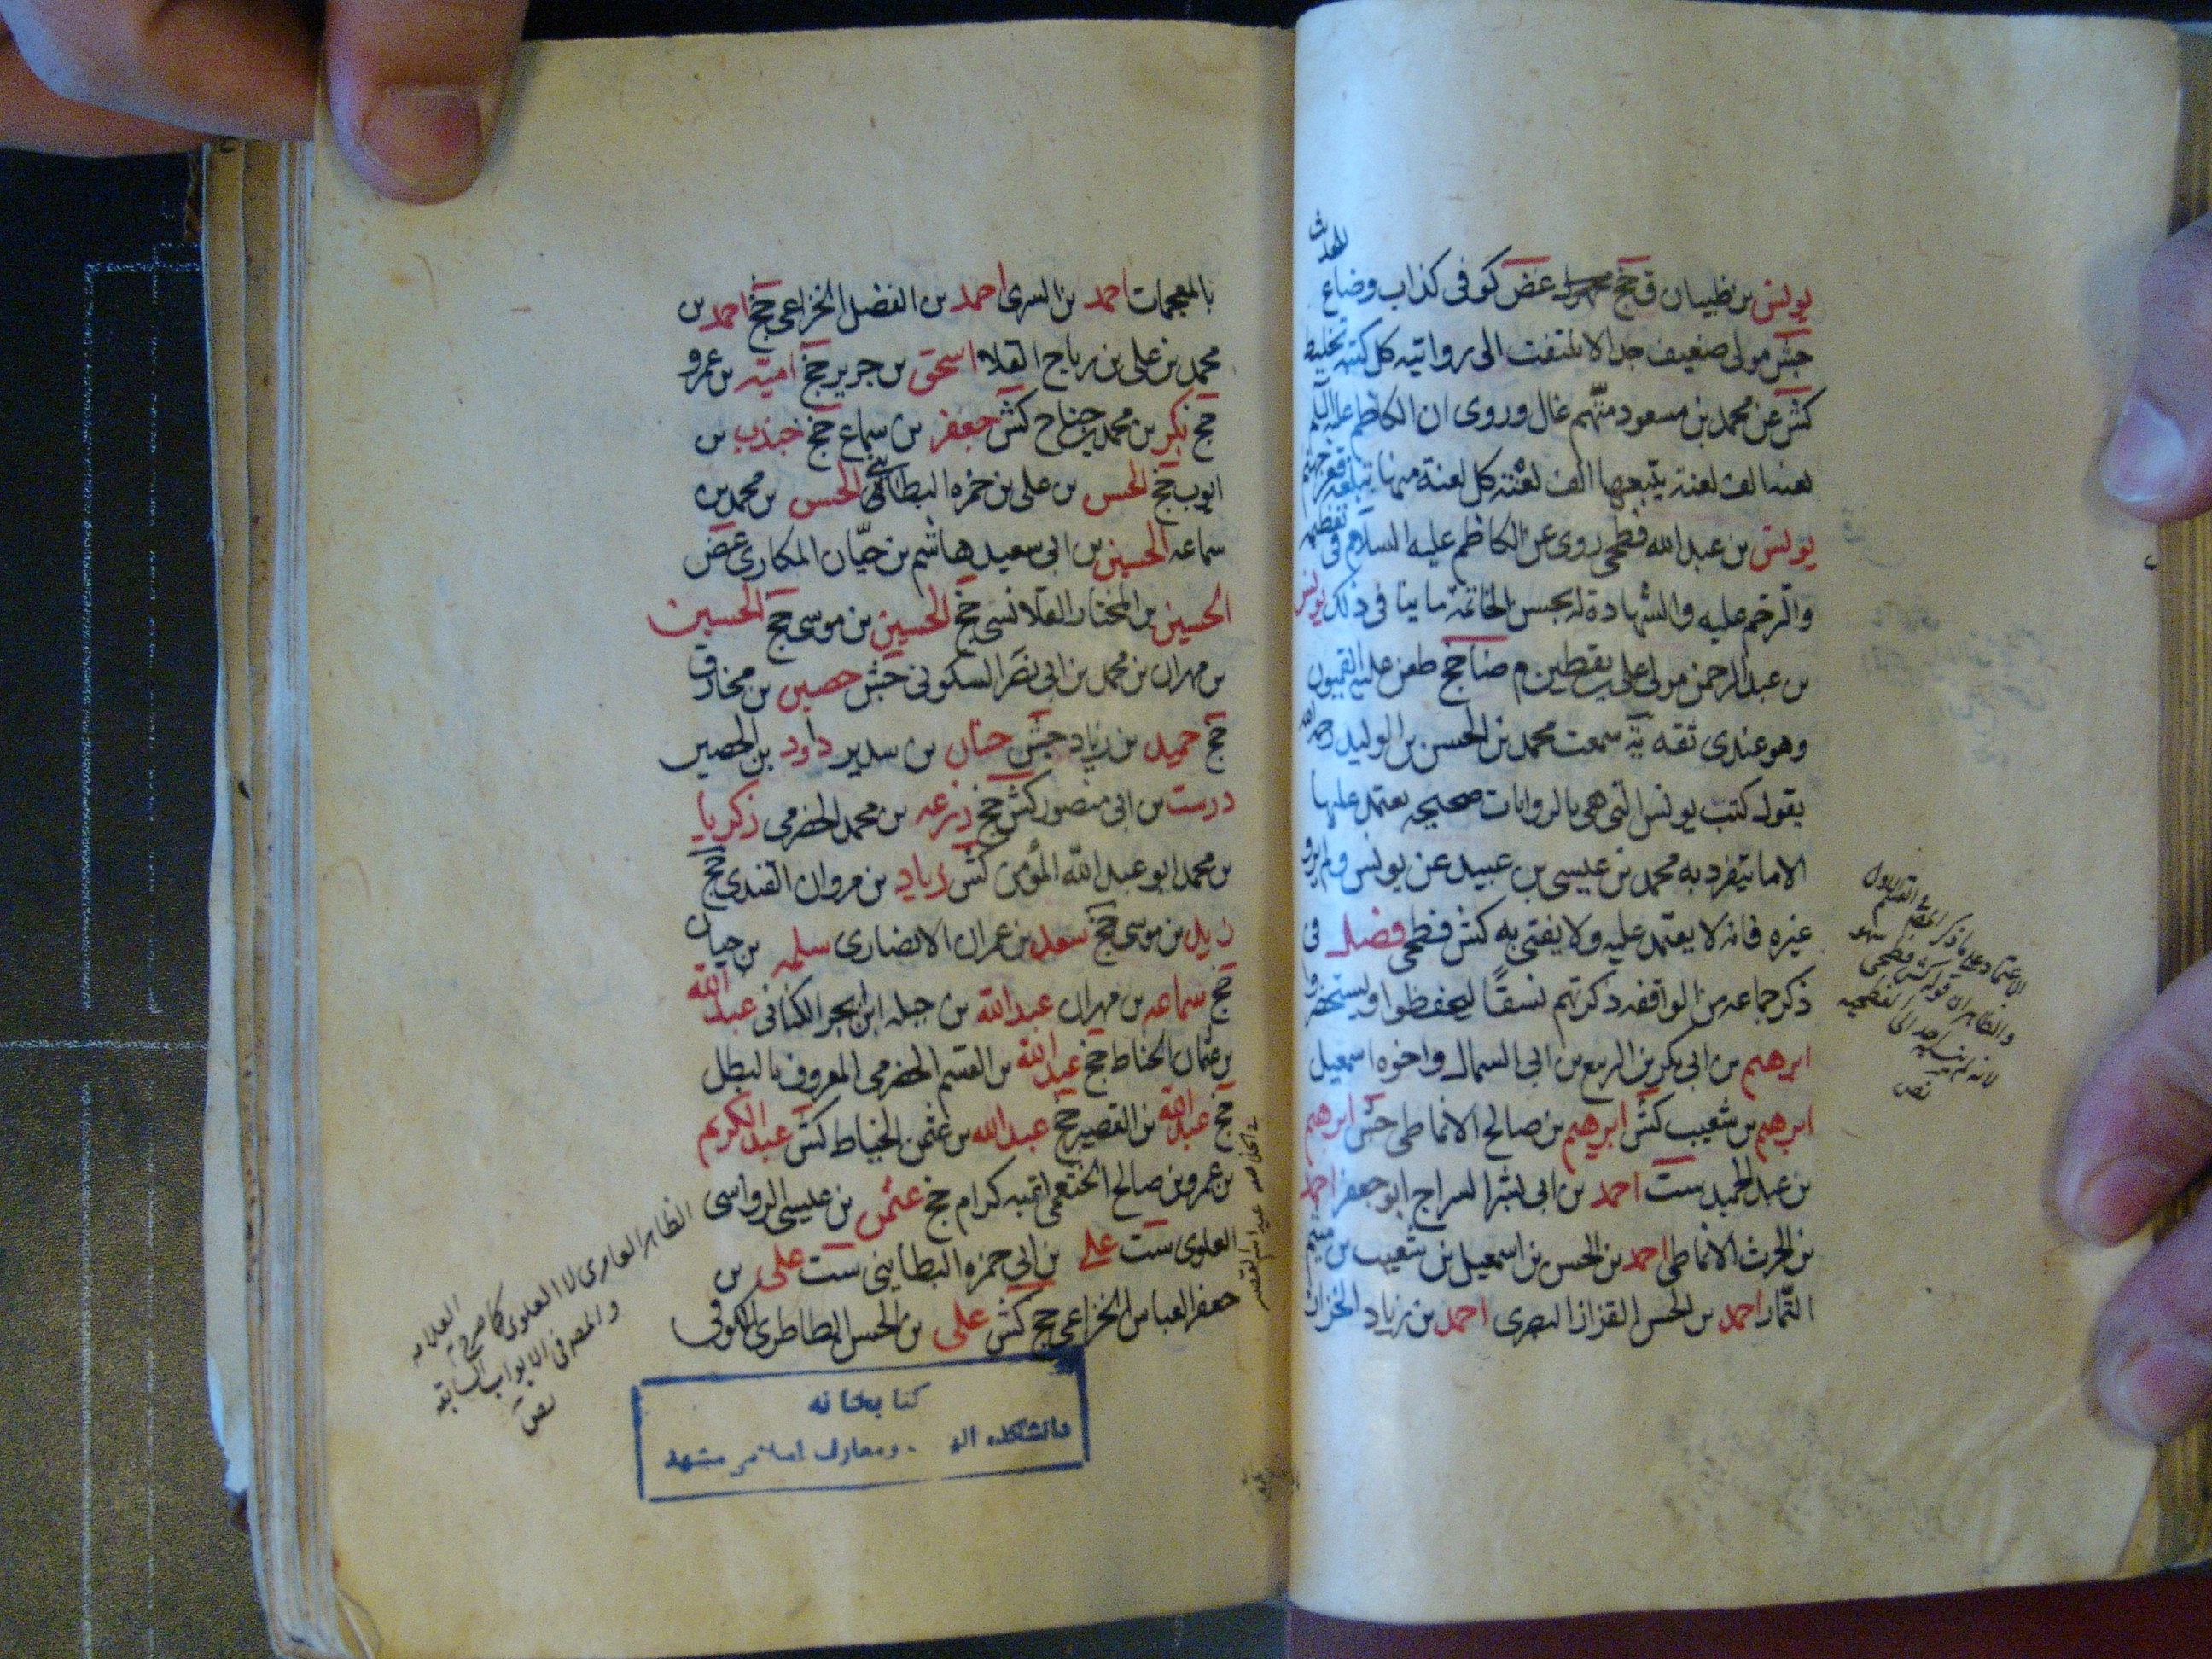 يونس بن ظبيان ق جخ غض كوفى كذاب وضاع للحديث
جش مولى ضعيف جدا لا يلتفت الى رواتيه كل كتبه تخليط
كش عن محمد بن مسعود متهم غال وروى ان الكاظم عليه السلم
لعنه الف لعنة يتبعها الف لعنة كل لعنة منها تبلغه قعر جهنم
يونس بن عبد الله فطحى روى عن الكاظم عليه السلام فى تعظيمه
والترحم عليه والشهادة له بحسن الخاتمة ما ينا فى ذلك يونس
بن عبد الرحمن مولى على بن يقطين م ضا جخ طعن عليه القميون
وهو عندى ثقه يه سمعت محمد بن الحسن بن الوليد رحمه الله
يقول كتب يونس التى هى بالروايات صحيحه يعتمد عليها
الا ما يتفرد به محمد بن عيسى بن عبيد عن يونس ولم يروه
غيره فانه لا يعتمد عليه ولا يفتى به كش فطحى فصل فى
ذكر جماعه من الواقفه ذكرتهم نسقًا ليحفظوا ويستحضروا
ابرهيم بن ابى بكر بن الربيع بن ابى السمال واخوه اسمعيل
ابرهيم بن شعيب كش ابرهيم بن صالح الانماطى جش ابرهيم
بن عبد الحميد ست احمد بن ابى بشر السراج ابو جعفر احمد
بن الحرث الانماطى احمد بن الحسن بن اسمعيل بن شعيب بن ميثم
التمار احمد بن الحسن القزاز البصرى احمد بن زياد الخزاز
والظاهر ان قوله كش فطحى سهو
بالمعجمات احمد بن السرى احمد بن الفضل الخزاعى جخ احمد بن
محمد بن على بن رباح القلا اسحق بن جرير جخ امية بن عمرو
جخ بكر بن محمد بن جناح كش جعفر بن سماع جخ جندب بن
ايوب جخ الحسن بن على بن حمزه البطائنى الحسن بن محمد بن
سماعه الحسين بن ابى سعيد هاشم بن حيّان المكارى غض
الحسين بن المختار القلانسى جخ الحسين بن موسى جخ الحسين
بن مهران بن محمد بن ابى نصر السكونى جش حصين بن مخارق
جخ حميد بن زياد جش حنان بن سدير داود بن الحصين
درست بن ابى منصور كش جخ زرعه بن محمد الحضرمى زكريا
بن محمد ابو عبد الله المؤمن كش زياد بن مروان القندى جخ
زيد بن موسى جخ سعد بن عمران الانصارى سلمه بن حيان
جخ سماعه بن مهران عبد الله بن جبله ابن ابجر الكنانى عبد الله
بن عثمان الحناط جخ عبد الله بن القسم الحضرمى المعروف بالبطل
جخ عبد الله بن القصير جخ عبد الله بن عثمن الخياط كش عبد الكريم
بن عمرو بن صالح الخثعمى لقبه كرام جخ عثمن بن عيسى الرواسى
العلوى ست على بن ابى حمزه البطاينى ست على بن
جعفر العباس الخزاعى جخ كش على بن الحسن الطاطرى الكوفى
الظاهر العامرى لا العلوى كما صرح به العلامه
والمصر فى الابواب السابقة
نص
كتابخانه
دانشكده اله . ومعارف اسلامى مشهد